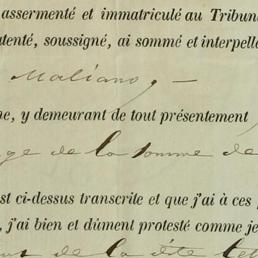 assermenté et immatriculé au Tribun
atenté, soussigné, ai sommé et interpellé
Maliano, —
ne, y demeurant de tout présentement
ge de la somme de
st ci-dessus transcrite et que j'ai à ces
, j'ai bien et dûment protesté comme je
de la dite